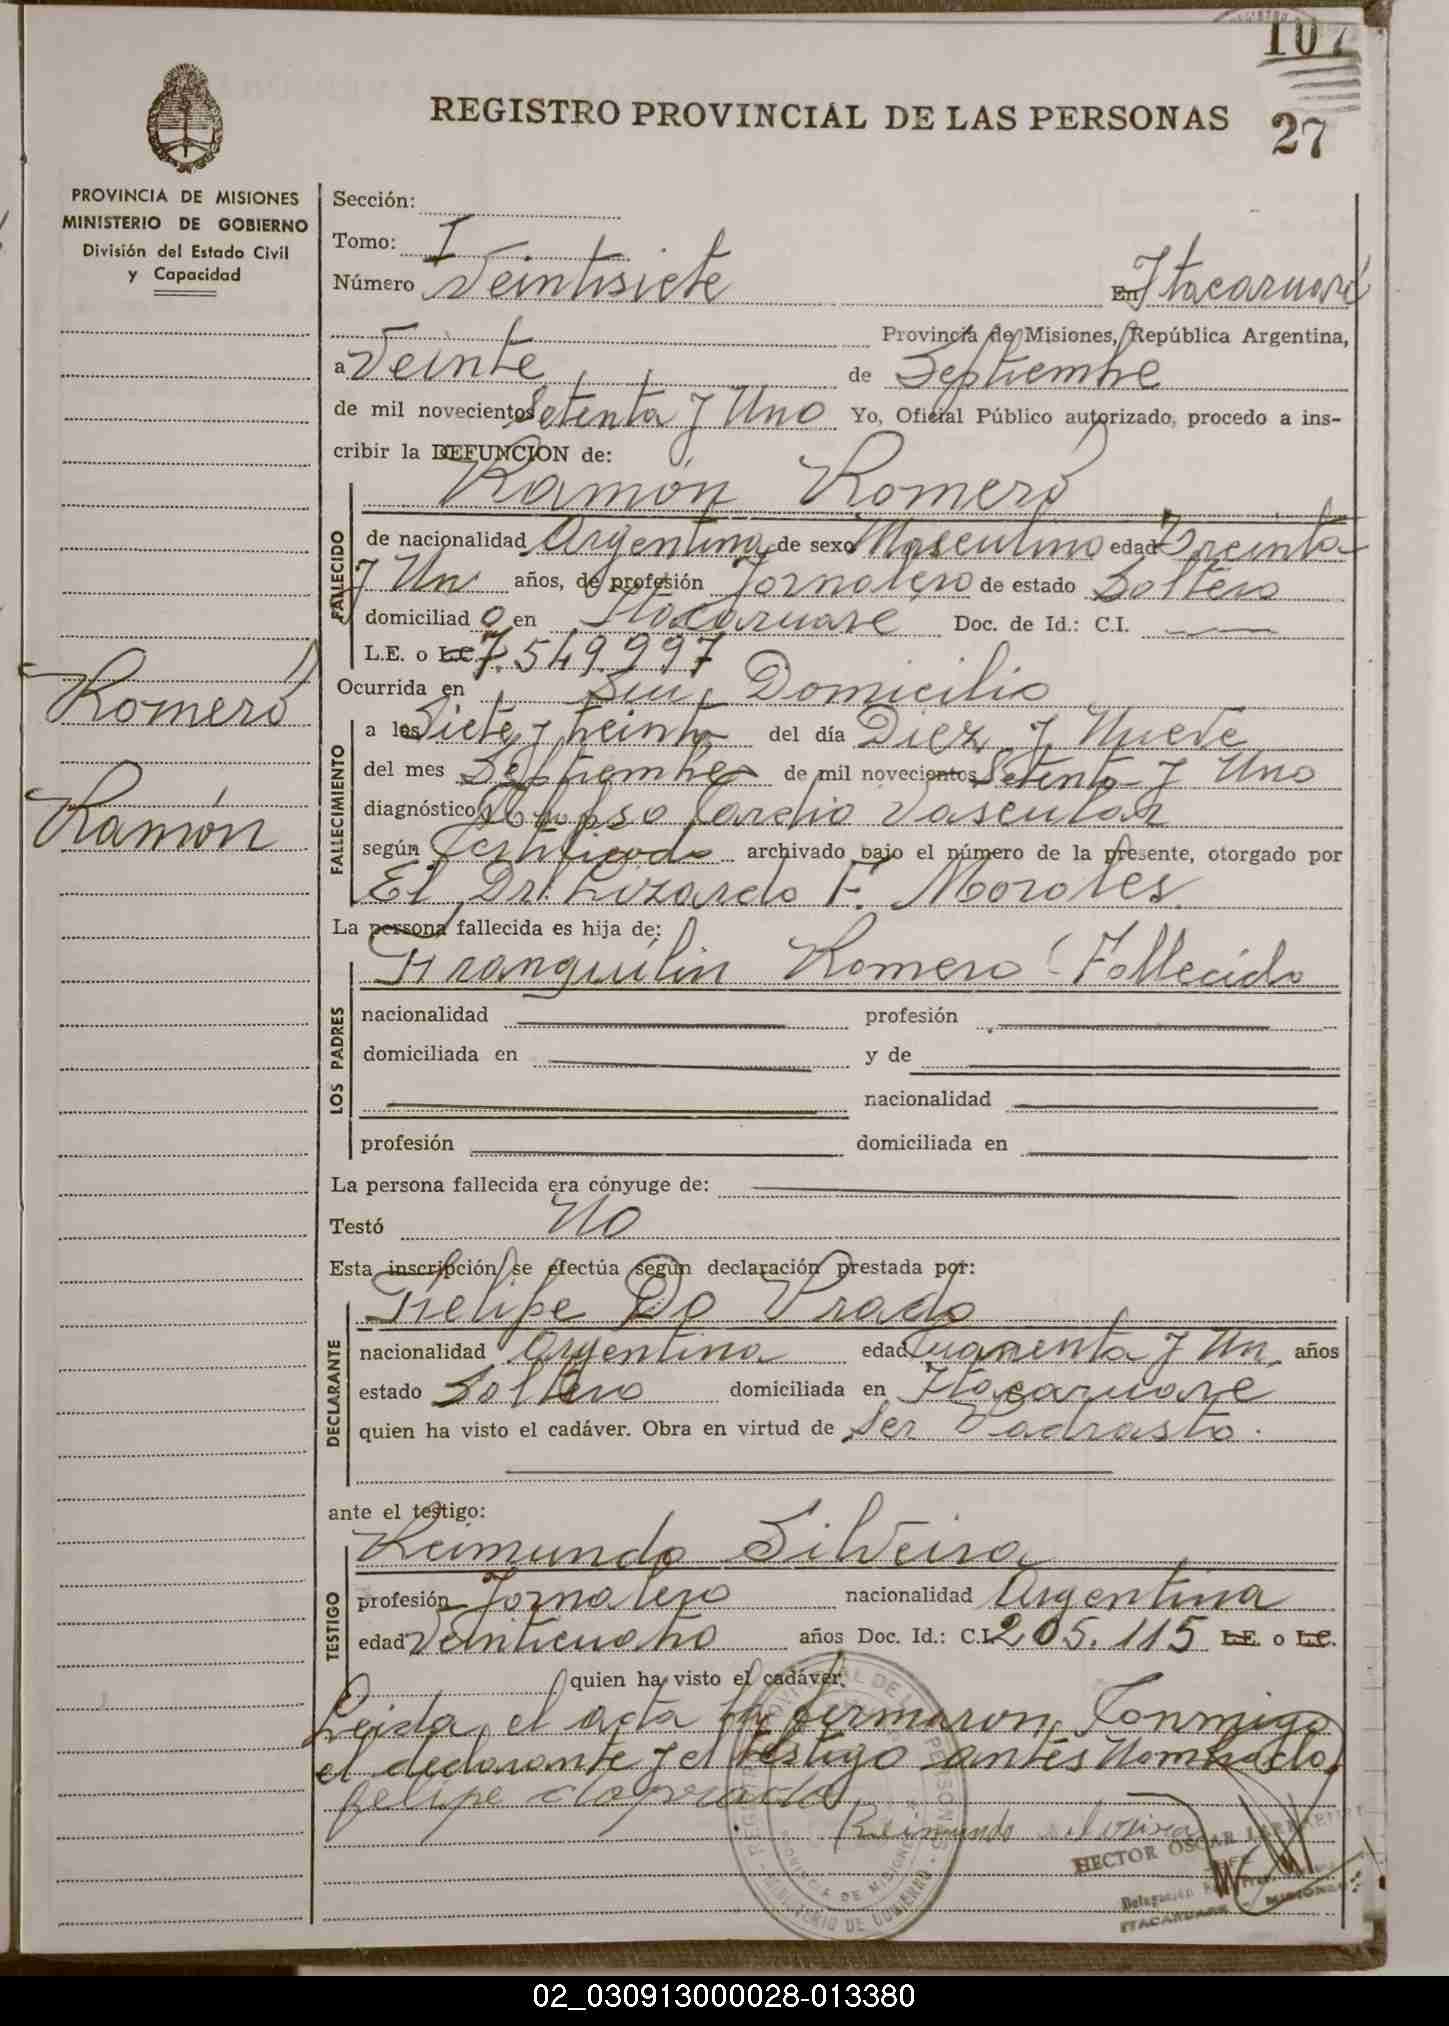 107
REGISTRO PROVINCIAL DE LAS PERSONAS
27
PROVINCIA DE MISIONES
MINISTERIO DE GOBIERNO
División del Estado Civil
y Capacidad
Romero
Ramón
Sección:
Tomo: I
Número Veintisiete En Itacaruaré
Provincia de Misiones, República Argentina,
a Veinte de Septiembre
de mil novecientos Setenta y Uno Yo, Oficial Público autorizado, procedo a ins-
cribir la DEFUNCION de:
Ramón Romero
FALLECIDO
de nacionalidad Argentina de sexo Masculino edad Treinta
y Un años, de profesión Jornalero de estado Soltero
domiciliad o en Itacaruare Doc. de Id.: C.I.
L.E. o L.C. 7.549.997
Ocurrida en Su Domicilio
FALLECIMIENTO
a las Siete y treinta del día Diez y Nueve
del mes Septiembre de mil novecientos Setenta y Uno
diagnóstico Colapso Cardio Vascular
según Certificado archivado bajo el número de la presente, otorgado por
El Dr. Lizardo F. Morales
La persona fallecida es hija de:
LOS PADRES
Tranquilin Romero (Fallecido
nacionalidad profesión
domiciliada en y de
nacionalidad
profesión domiciliada en
La persona fallecida era cónyuge de:
Testó No
Esta inscripción se efectúa según declaración prestada por:
DECLARANTE
Felipe Do Prado
nacionalidad Argentina edad Cuarenta y Un años
estado Soltero domiciliada en Itacaruare
quien ha visto el cadáver. Obra en virtud de Ser Padrasto.
ante el testigo:
TESTIGO
Reimundo Silveira
profesión Jornalero nacionalidad Argentina
edad Veinticuatro años Doc. Id.: C.I. 205.115 L.E. o L.C.
quien ha visto el cadáver.
Leida el acta la fermaron Conmigo
el declarante y el testigo antes Nombrado.
felipe doprado
Reimundo
HECTOR OSCAR
Delegación
ITACARUARE MISIONES
PROVINCIA DE MISIONES
MINISTERIO DE GOBIERNO
02_030913000028-013380